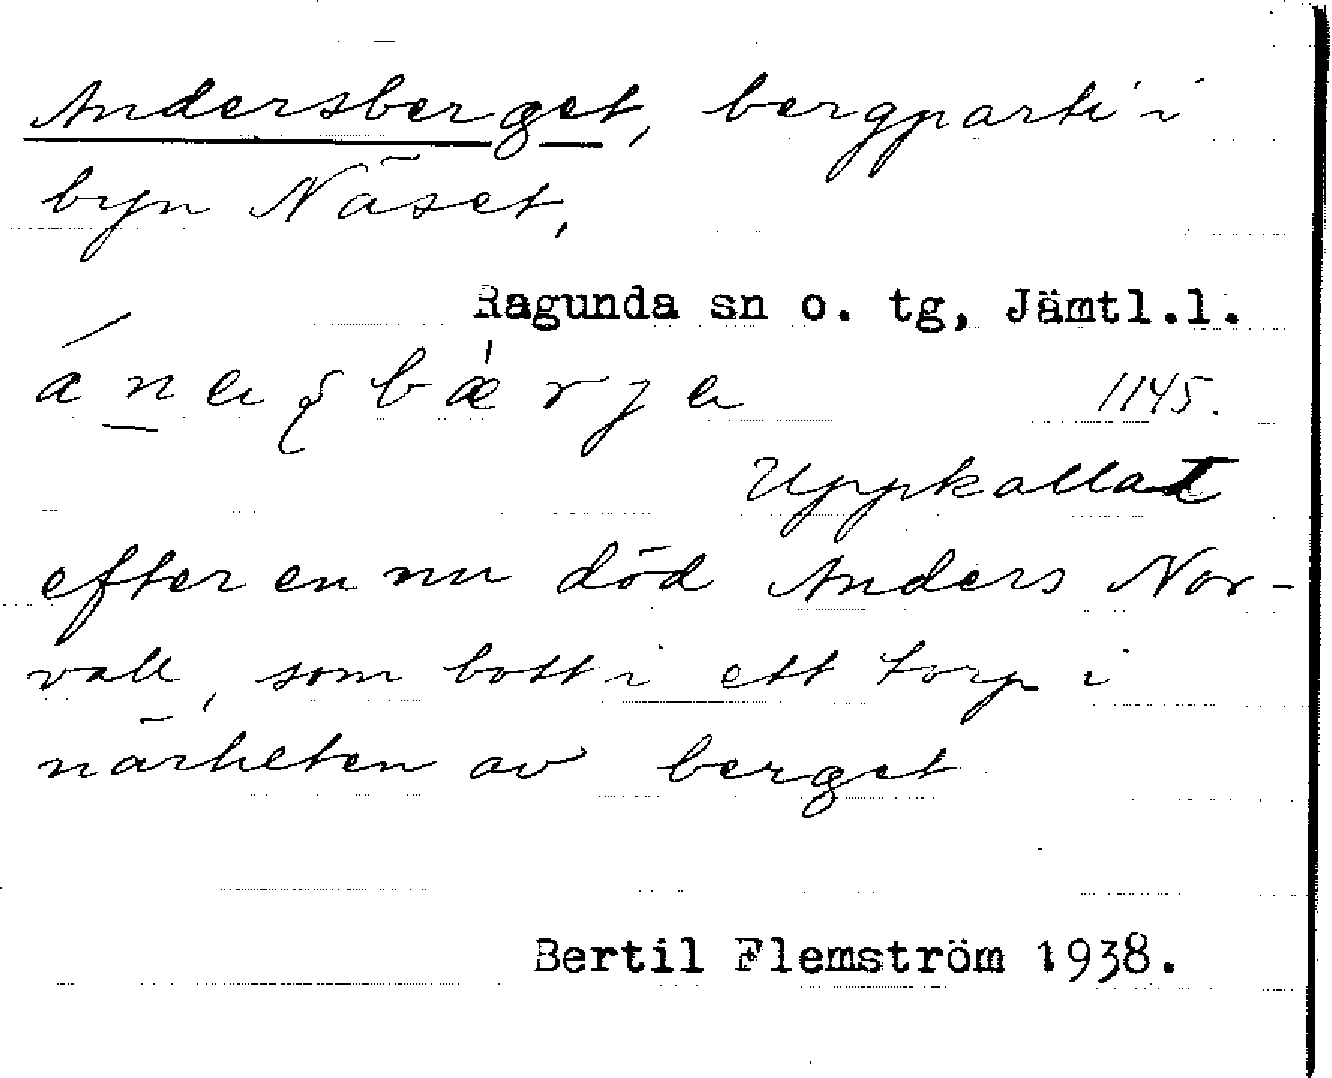 Andersberget, bergparti i
byn Näset,
Ragunda sn o. tg, Jämtl.l.
1145.
Uppkallat
efter en nu död Anders Nor-
vall, som bott i ett torp i
närheten av berget
Bertil Flemström 1938.